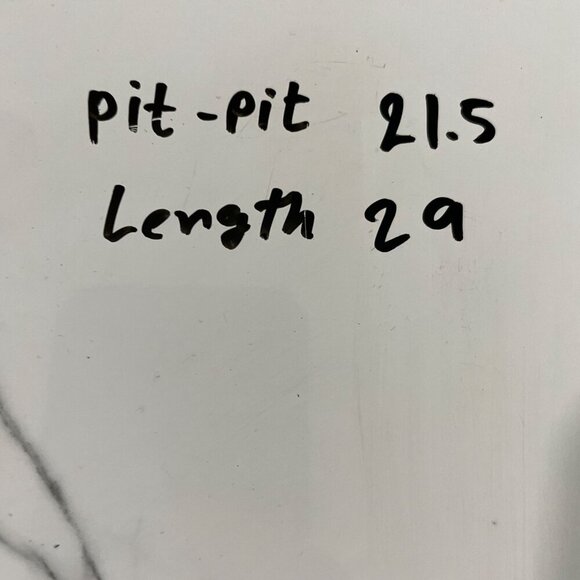 pit-pit 21.5
Length 29